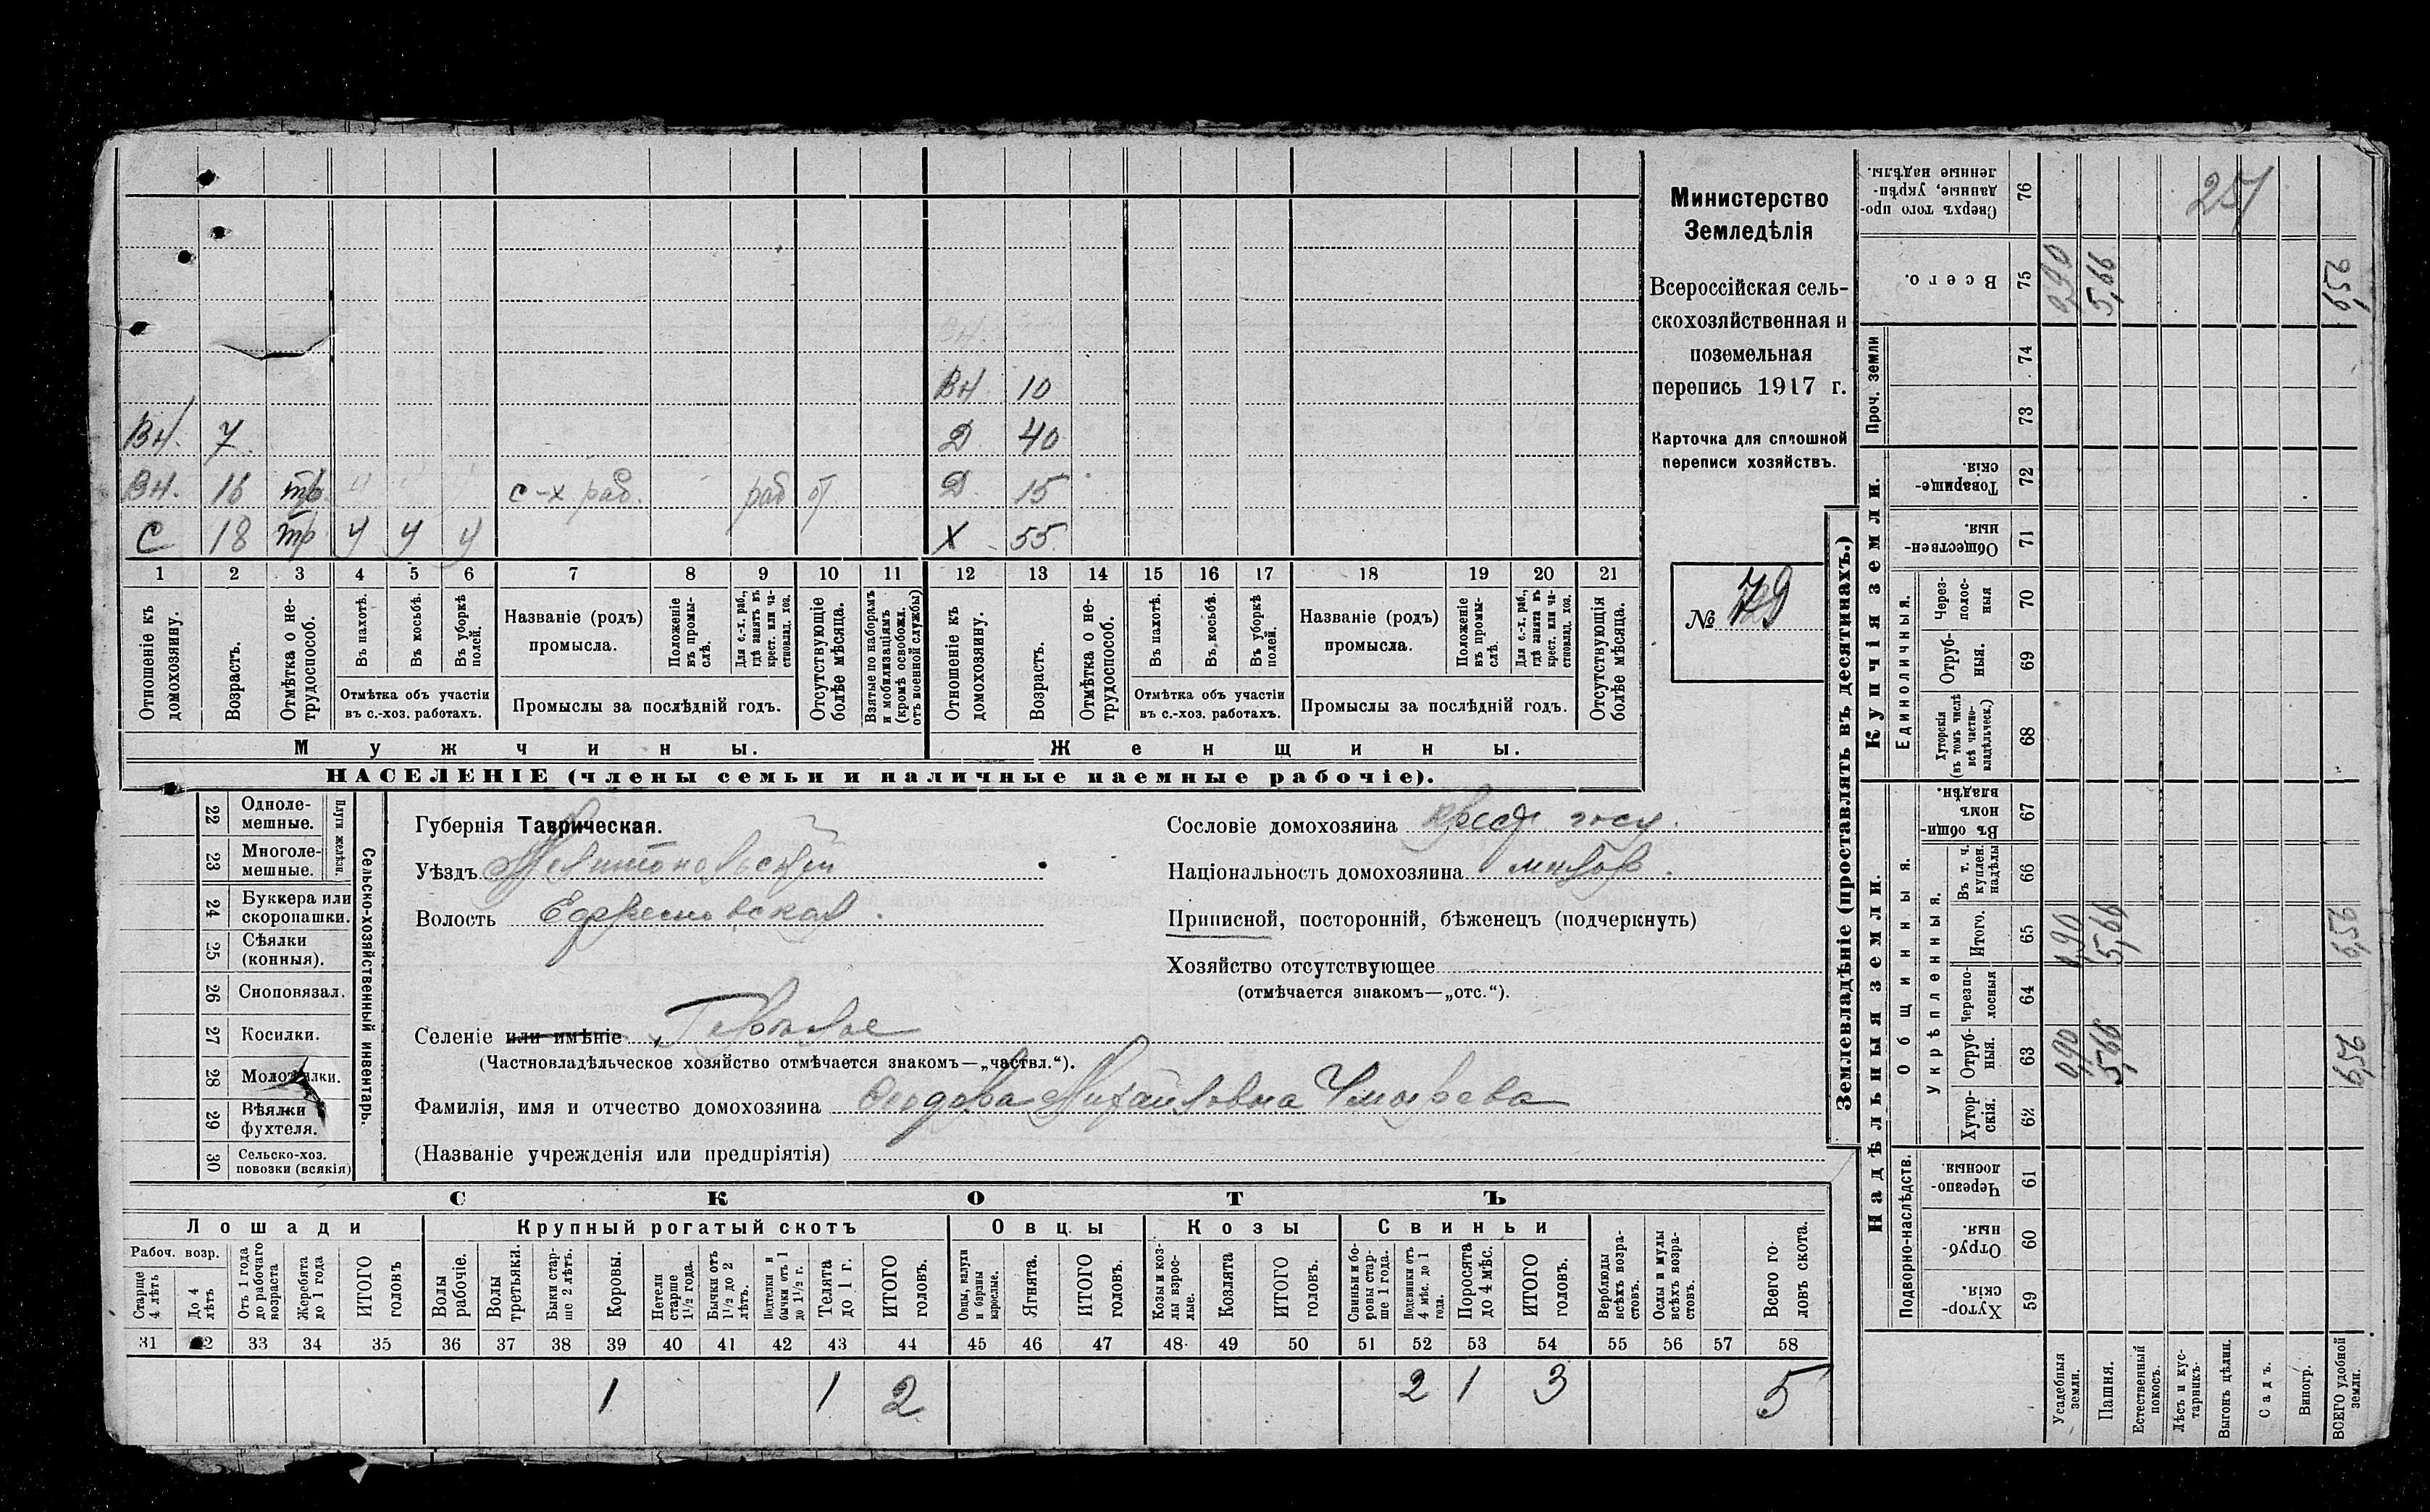 25
ВН. 10
ВН. 7 Д. 40
ВН. 16 тр. с-х раб. раб от Д. 15
С 18 тр у у у Х 55
1 2 3 4 5 6 7 8 9 10 11 12 13 14 15 16 17 18 19 20 21
Отношеніе къ домохозяину.
Возрастъ.
Отмѣтка о нетрудоспособ.
Въ пахотѣ.
Въ косьбѣ.
Въ уборкѣ полей.
Отмѣтка объ участіи
въ с.-хоз. работахъ.
Названіе (родъ)
промысла.
Положеніе въ промы-слѣ.
Для с.-х. раб., гдѣ занятъ въ крест. или ча-стновлад. хоз.
Промыслы за послѣдній годъ.
Отсутствующіе болѣе мѣсяца.
Взятые по наборамъ и мобилизаціямъ (кромѣ освобожд. отъ военной службы)
Отношеніе къ домохозяину.
Возрастъ.
Отмѣтка о не-трудоспособ.
Въ пахотѣ.
Въ косьбѣ.
Въ уборкѣ полей.
Отмѣтка объ участіи
въ с.-хоз. работахъ.
Названіе (родъ)
промысла.
Положеніе въ промы-слѣ.
Для с.-х. раб., гдѣ занята въ крест. или ча-стновлад. хоз.
Промыслы за послѣдній годъ.
Отсутствующія болѣе мѣсяца.
Мужчины. Женщины.
НАСЕЛЕНІЕ (члены семьи и наличные наемные рабочіе).
Министерство
Земледѣлія
Всероссійская сель-
скохозяйственная и
поземельная
перепись 1917 г.
Карточка для сплошной
переписи хозяйствъ.
№ 79
22 Одноле-мешные.
23 Многоле-мешные.
Плуги желѣзн.
24 Буккера или скоропашки.
25 Сѣялки (конныя).
26 Сноповязал.
27 Косилки.
28 Молотилки.
29 Вѣялки фухтеля.
30 Сельско-хоз. повозки (всякія)
Сельско-хозяйственный инвентарь.
Губернія Таврическая.
Уѣздъ Мелитопольскій
Волость Ефремовская.
Селеніе или имѣніе
(Частновладѣльческое хозяйство отмѣчается знакомъ—„частвл.“).
Фамилія, имя и отчество домохозяина Михайловна
(Названіе учрежденія или предпріятія)
Сословіе домохозяина крест. госу.
Національность домохозяина малор.
Приписной, посторонній, бѣженецъ (подчеркнуть)
Хозяйство отсутствующее
(отмѣчается знакомъ—„отс.“).
СКОТЪ
Лошади Крупный рогатый скотъ Овцы Козы Свиньи
Рабоч. возр.
Старше 4 лѣтъ
До 4 лѣтъ
Отъ 1 года до рабочаго возраста
Жеребята до 1 года
ИТОГО головъ
Волы рабочіе.
Волы третьяки.
Быки стар-ше 2 лѣтъ.
Коровы.
Нетели старше 1½ года.
Бычки отъ 1½ до 2 лѣтъ.
Подтелки и бычки отъ 1 до 1½ г.
Телята до 1 г.
ИТОГО головъ.
Овцы, валухи и бараны взрослые.
Ягнята.
ИТОГО головъ.
Козы и коз-лы взрос-лые.
Козлята
ИТОГО головъ.
Свиньи и бо-ровы стар-ше 1 года.
Подсвинки отъ 4 мѣс. до 1 года.
Поросята до 4 мѣс.
ИТОГО головъ.
Верблюды всѣхъ возра-стовъ.
Ослы и мулы всѣхъ возра-стовъ.
Всего го-ловъ скота.
31 32 33 34 35 36 37 38 39 40 41 42 43 44 45 46 47 48 49 50 51 52 53 54 55 56 57 58
1 1 2 2 1 3 5
Землевладѣніе (проставлять въ десятинахъ.)
Сверхъ того про-данные, укрѣп-ленные надѣлы. 76
Всего. 75 5,66 259
Проч. земли 74 73
Купчія земли.
Товарище-скія. 72
Обществен-ныя. 71
Единоличныя.
Через-полос-ныя 70
Отруб-ныя. 69
Хуторскія (въ томъ числѣ всѣ частно-владѣльческ.) 68
Надѣльныя земли.
Общинныя.
Въ общи-номъ владѣн. 67
Укрѣпленныя.
Въ т. ч. куплен. надѣлы 66
Итого. 65 5,66 259
Черезпо-лосныя 64
Отруб-ныя. 63 5,66 259
Хутор-скія. 62
Подворно-наслѣдств.
Черезпо-лосныя. 61
Отруб-ныя. 60
Хутор-скія. 59
Усадебныя земли.
Пашня.
Естественный покосъ.
Лѣсъ и кус-тарникъ.
Выгонъ цѣлин.
Садъ.
Виногр.
ВСЕГО удобной земли.